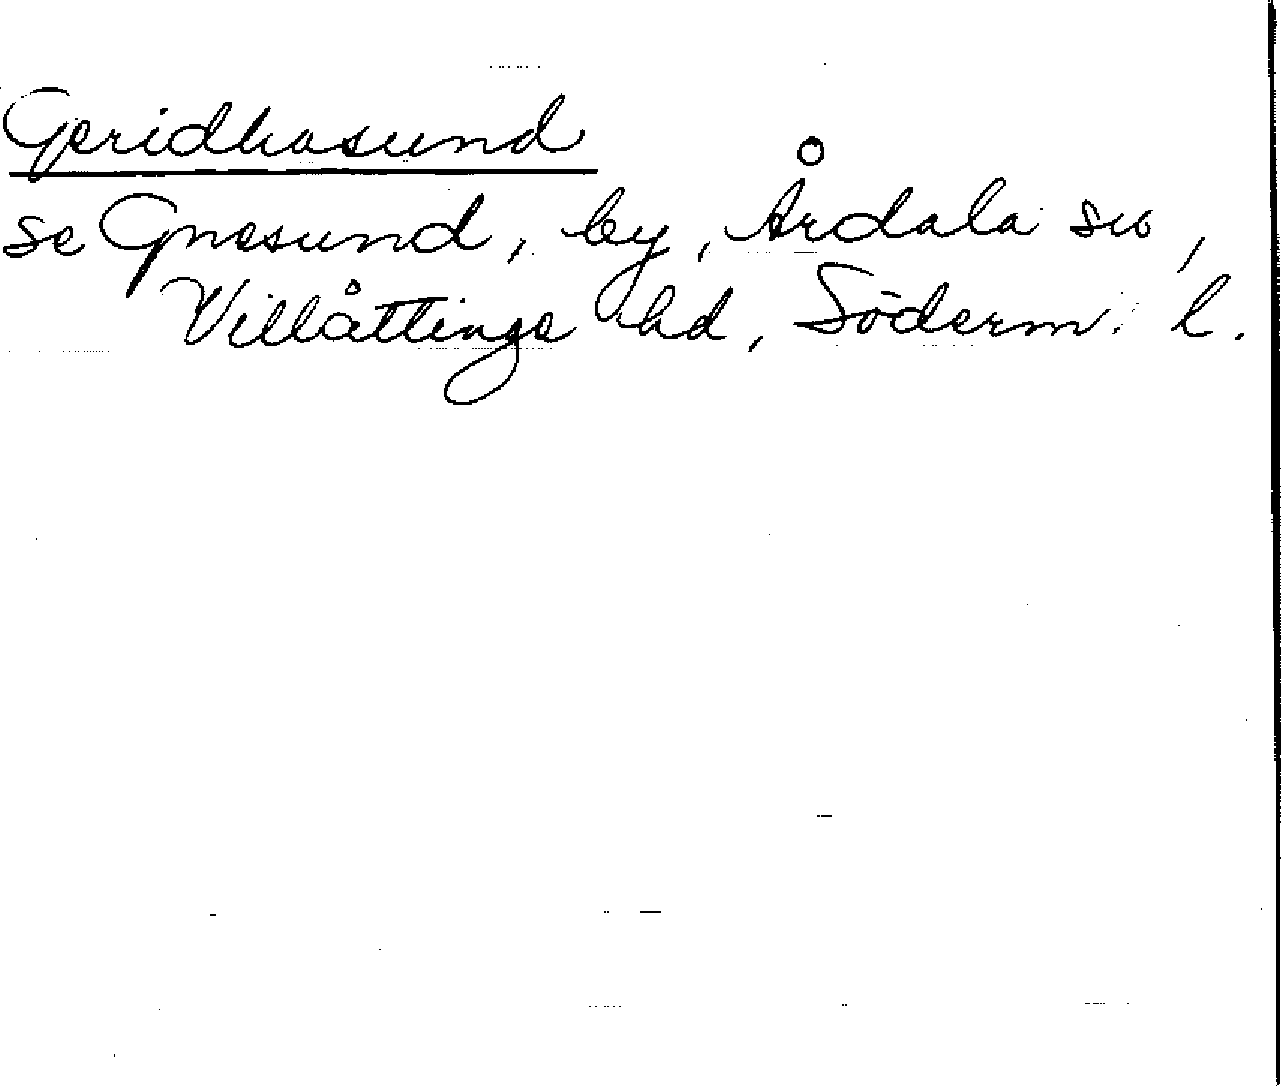 Geridhasund
se Gnesund, by, Årdala sn,
Villåttinge hd, Söderm. l.